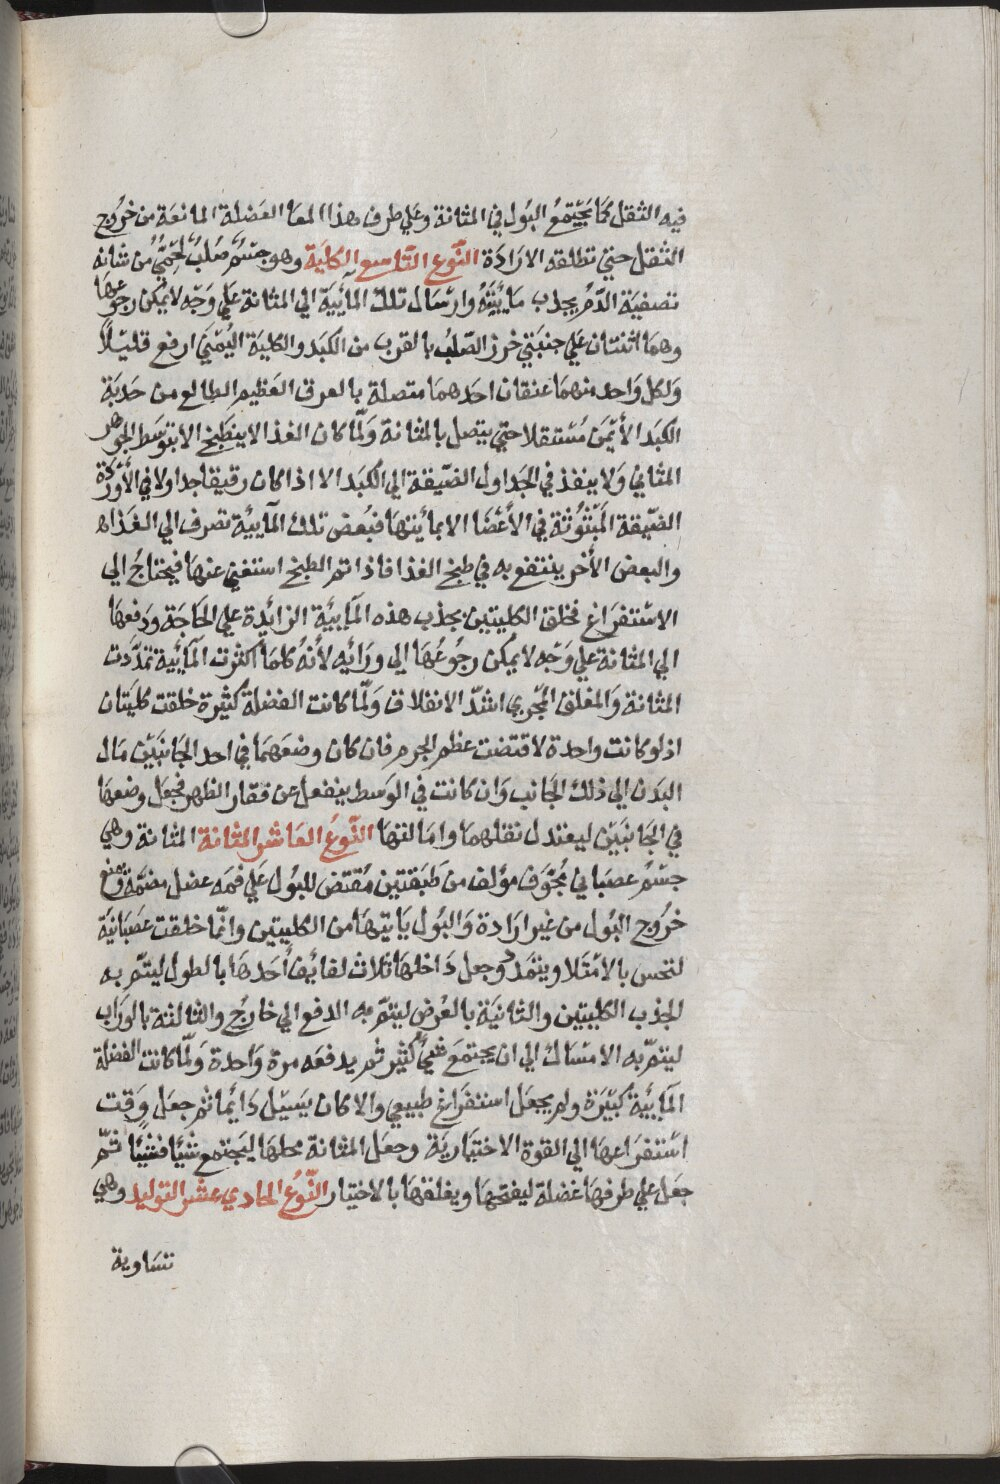 فيه الثقل كما يَجْتَمعُ البَول في المثانة وعلي طرف هذا المعا العَضلة المانعَة من خرُوج
الثقل حتي تطلقه الارَادَة النّوع التاسع الكليَة وهو جسْمٌ صُلبٌ لَحْمّيٌ من شانه
تصفيَة الدّم يجذب مَائيَّتُهُ وارسَال تلك المآئيّة الي المثانة عَلي وَجْه لا يمكن رجوُعهَا
وهمَا اثنتان عَلي جنبَتي خرز الصّلبُ بالقرب من الكبَد والكليَة اليُمْنَي ارفع قليْلاً
وَلكل وَاحد منهمَا عنقان احَدهمَا متصلة بالعرق العَظيم الطالع من حَدبَة
الكبَد الأيْمَن مُسْتقلا حتي يتصل بالمثانة وَلمّا كان الغذا لا ينطَبخ الا بتوَسَط الجَوهر
المثاني وَلا ينفذ في الجَداول الضّيقة الي الكبَد الا اذا كان رقيقا جدا ولا في الأورْدَة
الضّيقة المَبْثوُثة في الأعْضَا الا بمائيتهَا فبُعض تلك المآييّة تصرف الي الغَذاء
والبعض الأخر ينتفع به في طبخ الغذا فاذا تم الطبخ استغني عنهَا فيحتاجُ الي
الاسْتفرَاغ فخلق الكليتين بجذب هذه المآييَّة الزائيدة علي الحَاجَة ودَفعهَا
الي المثانة علي وَجْه لا يمكن رجوُعُهَا الي ورَائه لأنهُ كلمَا أكثرت المآئيّة تمدّدَت
المثانة وَالمغلق المجْري اشدّ الانفلاق وَلمّا كانت الفضلة كثيْرة خلقت كليَتان
اذ لو كانت واحدة لاقتضت عظم الجرم فان كان وضعَهمَا في احد الجَانبَيْن مَال
البَدَن الي ذلك الجَانب وَان كانت في الوَسَط ينفعل عن فقار الظهر فجعَل وضعهَا
في الجَانبَيْن ليعتدل ثقلهمَا وامَالتهَا النّوعُ العَاشر المثانة وهي
جسْمُ عصبَاني مُجَوّف مؤلف من طَبَقتين مُقتض للبُول عَلي فمَه عضل مضمَّة وتمنع
خرُوج البُول من غير ارَادة وَالبُول يَاتيْهَا من الكليتين وانمّا خلقت عَصبَانيَّة
لتحس بالامْتَلا ويتمدد وجعل دَاخلهَا ثلاث لفائف أحَدهَا بالطول ليتمّ به
الجذب الكليتين والثانيَة بالعُرض ليتمّ به الدفع الي خارجُ والثالثة بالورَاب
ليتمّ به الامسَاك الي ان يجتمَعَ شيٌ كثيْر ثم يدفعَه مرة وَاحدة وَلمّا كانت الفضلة
المآييَّة كبيَرَة ولم يجعَل استفرَاغ طبيعي والا كان يَسَيْل دَائما ثم جعَل وَقت
اسْتفرَاعهَا الي القوة الاختيَاريَة وجعَل المثانة محلهَا ليَجتمع شيْاً فشيْاً ثمّ
جعَل علي طرفهَا عَضلة ليفتحهَا ويغلقهَا بالاختيار النّوُع الحادي عشر التوليد وهي
تسَاوية